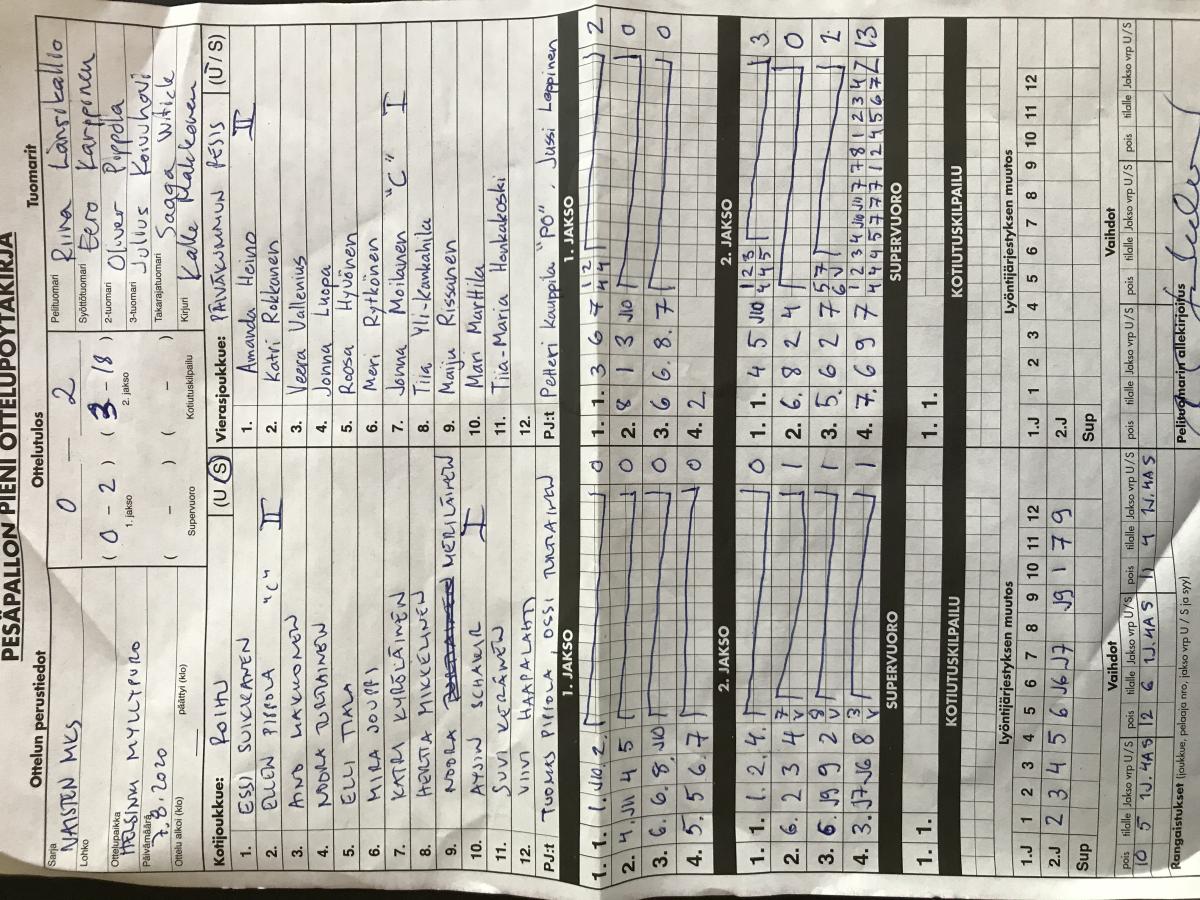 PESÄPALLON PIENI OTTELUPÖYTÄKIRJA
Ottelun perustiedot
Sarja
NAISTEN MKS
Lohko
Ottelupaikka
HELSINKI MYLLYPURO
Päivämäärä
7.8.2020
Ottelu alkoi (klo)
päättyi (klo)
Ottelutulos
0 – 2
( 0 – 2 ) ( 3 – 18 )
1. jakso 2. jakso
( – ) ( – )
Supervuoro Kotiutuskilpailu
Tuomarit
Pelituomari Riina Länsikallio
Syöttötuomari Eero Karppinen
2-tuomari Oliver Pirppola
3-tuomari Julius Koivuhovi
Takarajatuomari Saga Witick
Kirjuri Kalle Makkonen
Kotijoukkue: ROIHU (U/S)
1. ESSI SUIKKANEN
2. ELLEN PIPPOLA "C" II
3. AINO LAKKONEN
4. NOORA TURTIAINEN
5. ELLI TIALA
6. MIRA JOUPPI
7. KATRI KYRÖLÄINEN
8. HENTA MIKKELINEN
9. NOORA MERILÄINEN
10. AYSIN SCHAKIR I
11. SUVI KERÄNEN
12. VIIVI HAAPALAHTI
PJ:t TUOMAS PIPPOLA, OSSI TURTIAINEN
Vierasjoukkue: PÄIVÄKUMMUN PESIS (U/S)
1. Amanda Heino II
2. Katri Rokkanen
3. Veera Vallenius
4. Jonna Luopa
5. Roosa Hyvönen
6. Meri Rytkönen
7. Jonna Moilanen "C" I
8. Tiia Yli-Kankahila
9. Maiju Rissanen
10. Mari Marttila
11. Tiia-Maria Honkakoski
12.
PJ:t Petteri Kauppila "PO", Jussi Lappinen
1. JAKSO
1. 1. 1. J10. 2. 0
2. 4. J11 4 5 0
3. 6. 6. 8. J10 0
4. 5. 5 6. 7 0
1. JAKSO
1. 1. 3 6 7 1 2 4 4 2
2. 8 1 3 J10 0
3. 6 6. 8. 7 0
4. 2.
2. JAKSO
1. 1. 1. 2. 4. 0
2. 6. 2 3 4 7 V 1
3. 6. J9 9 2 8 V 1
4. 3. J7 J6 8 3 V 1
2. JAKSO
1. 1. 4 5 J10 1 2 3 4 4 5 3
2. 6. 8 2 4 0
3. 5. 6 2 7 5 7 6 J 2
4. 7. 6 9 7 1 2 3 4 J10 J10 7 7 8 1 2 3 4 4 4 4 5 7 7 7 1 2 4 5 6 7 7 13
SUPERVUORO
1. 1.
SUPERVUORO
1. 1.
KOTIUTUSKILPAILU
KOTIUTUSKILPAILU
Lyöntijärjestyksen muutos
1 2 3 4 5 6 7 8 9 10 11 12
1.J
2.J 2 3 4 5 6 J6 J7 J9 1 7 9
Sup
Lyöntijärjestyksen muutos
1 2 3 4 5 6 7 8 9 10 11 12
1.J
2.J
Sup
Vaihdot
pois tilalle Jakso vrp U/S pois tilalle Jakso vrp U/S pois tilalle Jakso vrp U/S
10 5 1J. 4A S 12 6 1J. 4A S 11 4 1J. 4A S
Vaihdot
pois tilalle Jakso vrp U/S pois tilalle Jakso vrp U/S pois tilalle Jakso vrp U/S
Rangaistukset (joukkue, pelaaja nro, jakso vrp U / S ja syy)
Pelituomarin allekirjoitus